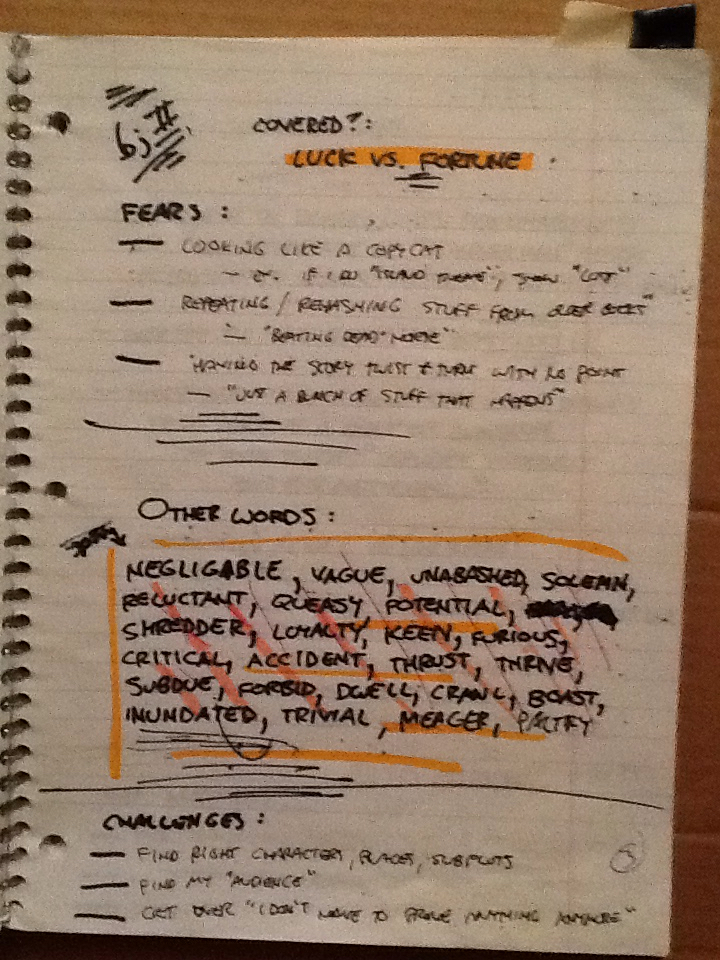 COVERED?:
LUCK VS. FORTUNE
FEARS:
— LOOKING LIKE A COPYCAT
— EX. IF I DO "ISLAND THEME", THEN "LOST"
— REPEATING / REHASHING STUFF FROM OLDER
— "BEATING DEAD HORSE"
— HAVING THE STORY TWIST & TURN WITH NO POINT
— "JUST A BUNCH OF STUFF THAT HAPPENS"
OTHER WORDS:
NEGLIGABLE, VAGUE, UNABASHED, SOLEMN,
RELUCTANT, QUEASY POTENTIAL,
SHREDDER, LOYALTY, KEEN, FURIOUS,
CRITICAL, ACCIDENT, THRUST, THRIVE,
SUBDUE, FORBID, DWELL, CRAWL, BOAST,
INUNDATED, TRIVIAL, MEAGER, PALTRY
CHALLENGES:
— FIND RIGHT CHARACTERS, PLACES, SUBPLOTS
— FIND MY "AUDIENCE"
— GET OVER "I DON'T HAVE TO PROVE ANYTHING ANYMORE"